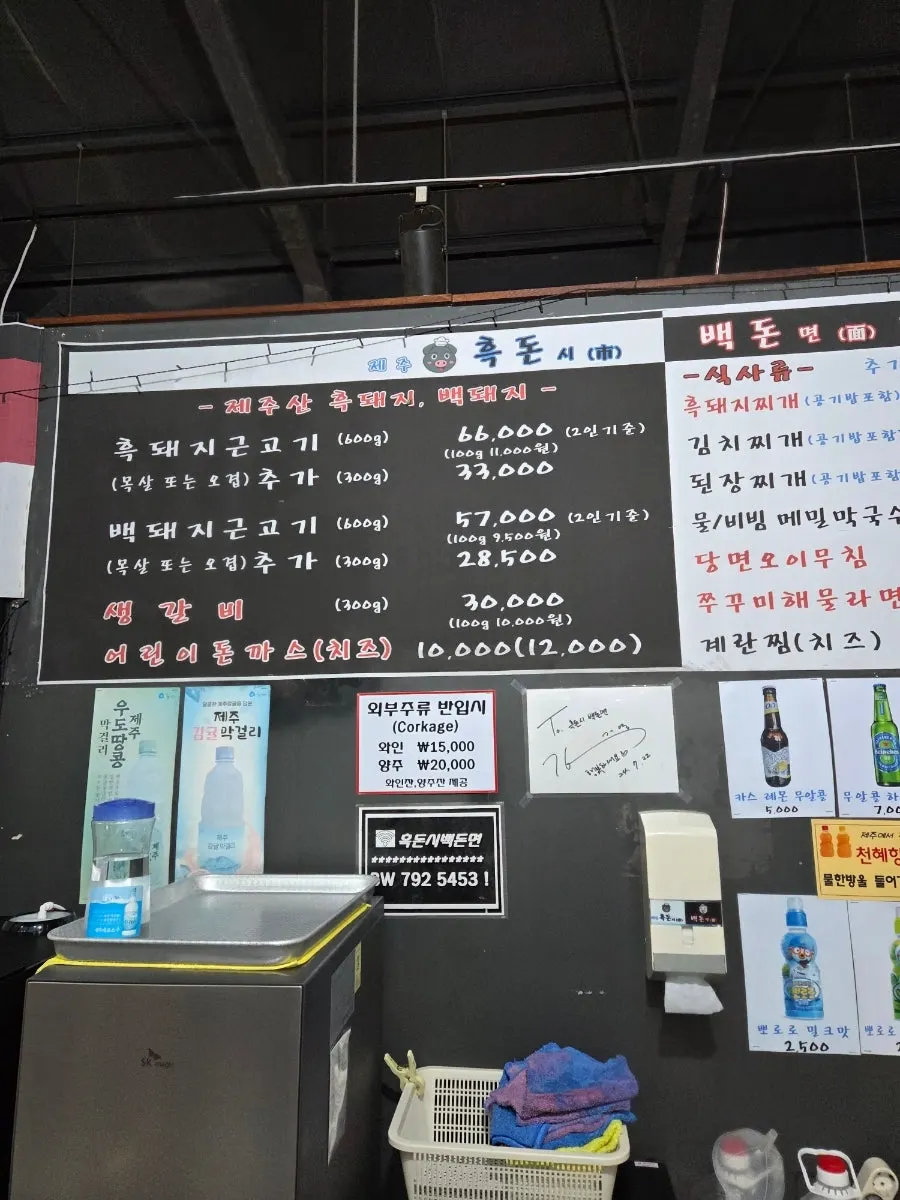 제주 흑돈 시 (市)
- 제주산 흑돼지, 백돼지 -
흑돼지근고기 (600g) 66,000 (2인기준)
(100g 11,000원)
(목살 또는 오겹) 추가 (300g) 33,000
백돼지근고기 (600g) 57,000 (2인기준)
(100g 9,500원)
(목살 또는 오겹) 추가 (300g) 28,500
생갈비 (300g) 30,000
(100g 10,000원)
어린이돈까스(치즈) 10,000(12,000)
백돈 면 (面)
-식사류- 추가
흑돼지찌개 (공기밥포함)
김치찌개 (공기밥포함)
된장찌개 (공기밥포함)
물/비빔 메밀막국수
당면오이무침
쭈꾸미해물라면
계란찜(치즈)
제주
우도땅콩
막걸리
제주
감귤 막걸리
외부주류 반입시
(Corkage)
와인 ₩15,000
양주 ₩20,000
와인잔,양주잔 제공
To. 흑돈시 백돈면
흑돈시백돈면
****************
PW 792 5453 !
카스 레몬 무알콜
5,000
Heineken
무알콜 하
7,0
제주에서
천혜향
물한방울 들어가
뽀로로 밀크맛
2,500
뽀로로
SK